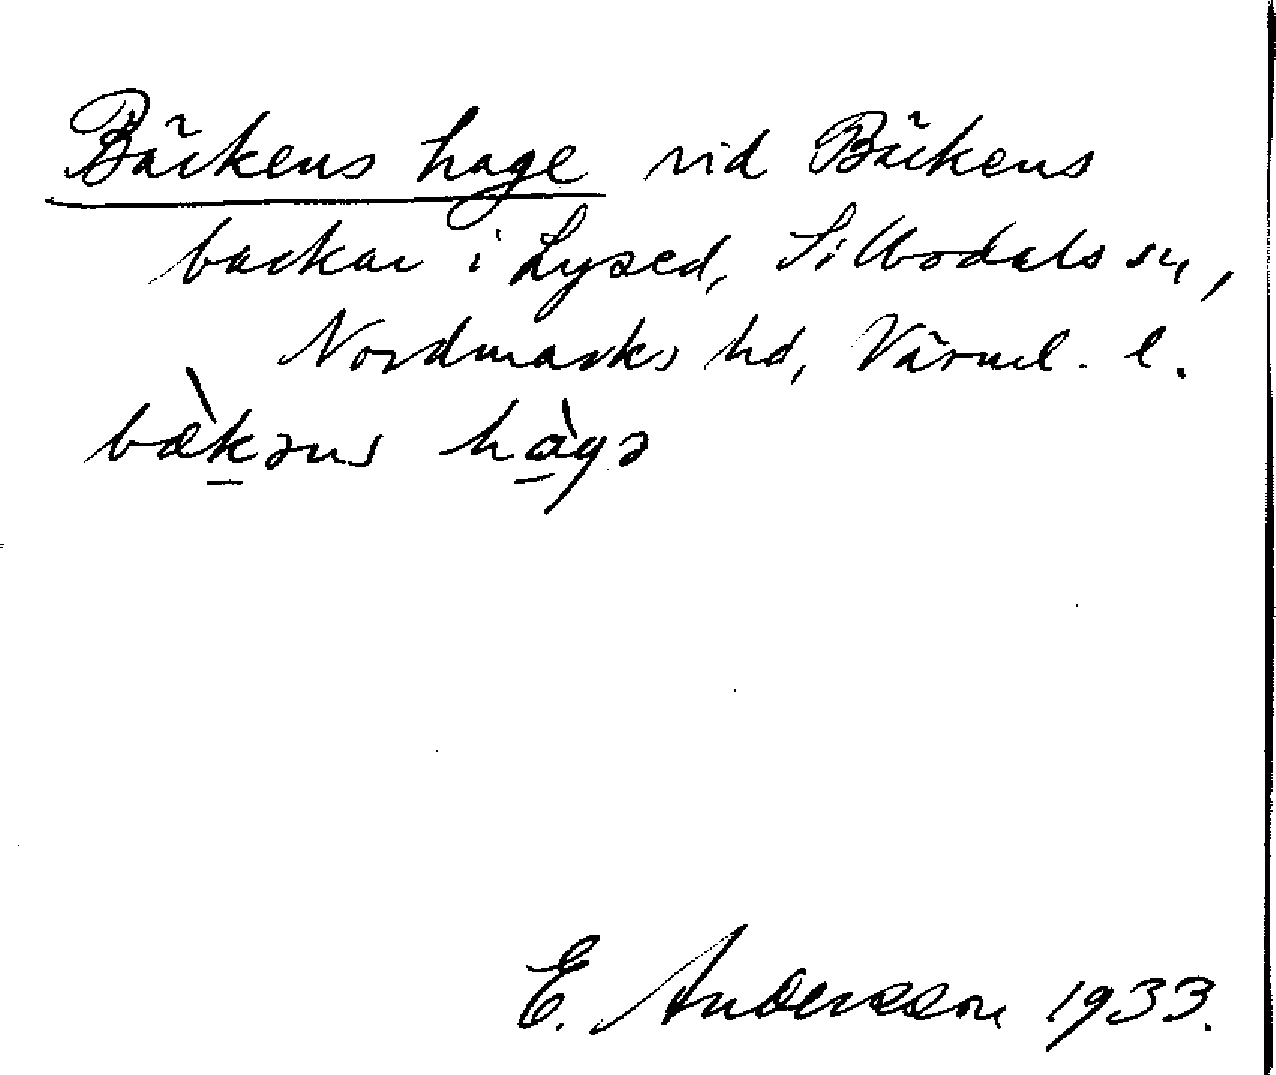 Bäckens hage vid Bäckens
backar i Lysed, Sillbodals sn,
Nordmarks hd, Värml. l.
bæ̀kəns hàgə
E. Andersson 1933.